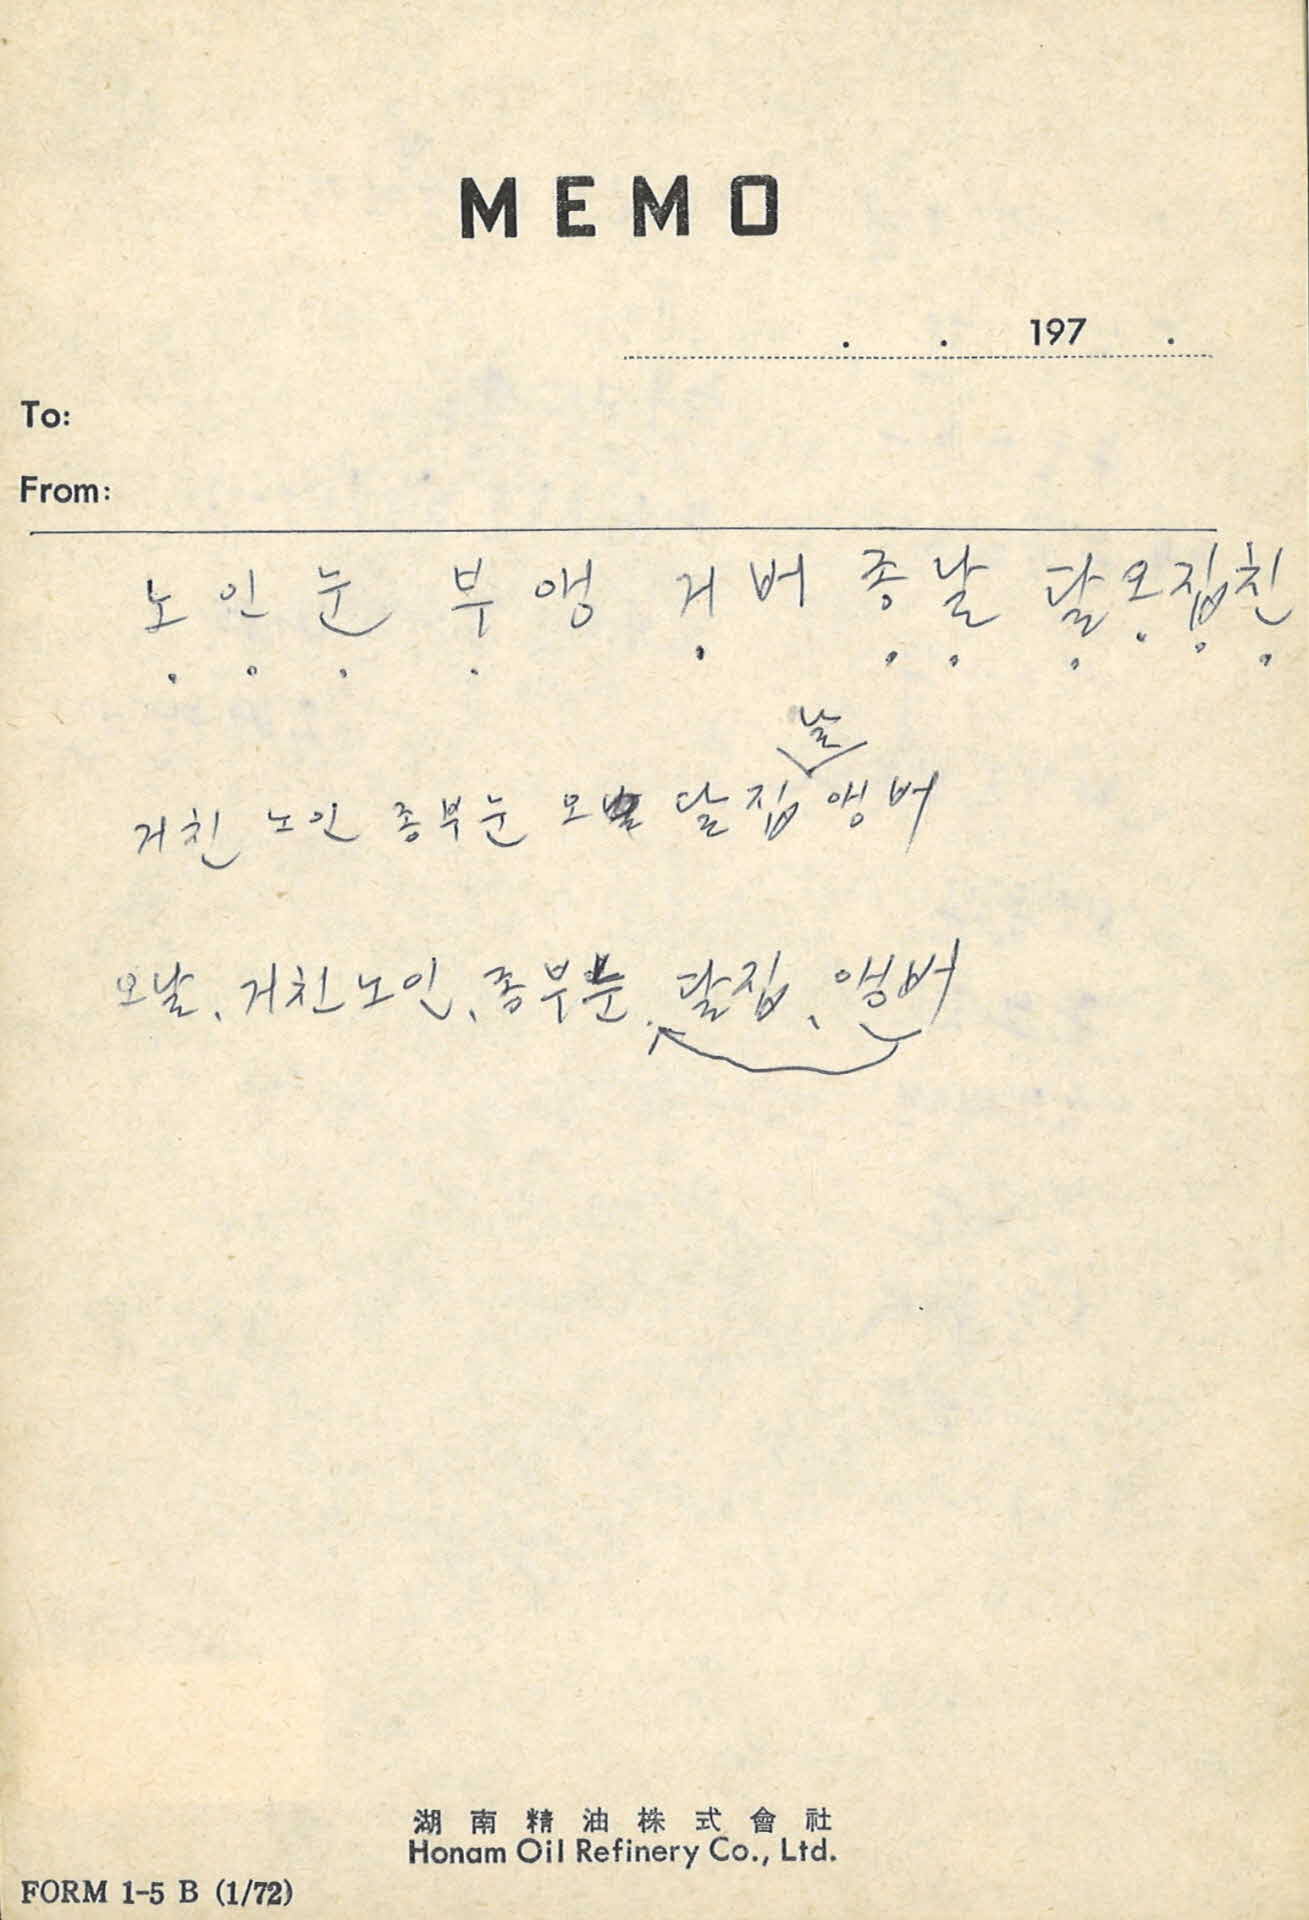 MEMO
. . 197 .
To:
From:
노 인 눈 부 앵 거 버 종 날 달 오 집 친
날
거친 노인 종부눈 오 달집 앵버
오날, 거친노인, 종부눈, 달집, 앵버
湖南精油株式會社
Honam Oil Refinery Co., Ltd.
FORM 1-5 B (1/72)